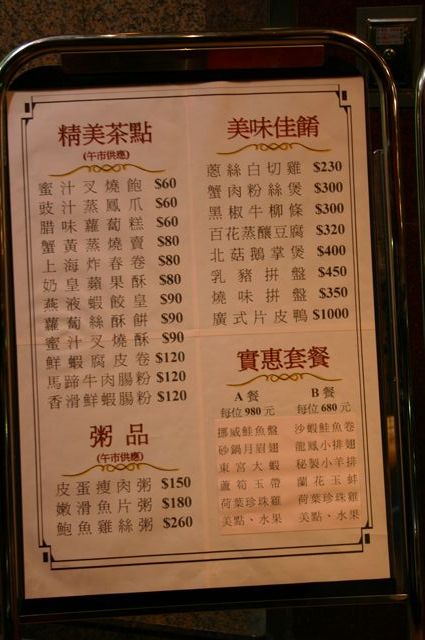 精美茶點
(午市供應)
蜜汁叉燒飽 $60
豉汁蒸鳳爪 $60
腊味蘿蔔糕 $60
蟹黃蒸燒賣 $80
上海炸春卷 $80
奶皇蘋果酥 $80
燕液蝦餃皇 $90
蘿蔔絲酥餅 $90
蜜汁叉燒酥 $90
鮮蝦腐皮卷 $120
馬蹄牛肉腸粉 $120
香滑鮮蝦腸粉 $120
粥品
(午市供應)
皮蛋瘦肉粥 $150
嫩滑魚片粥 $180
鮑魚雞絲粥 $260
美味佳餚
蔥絲白切雞 $230
蟹肉粉絲煲 $300
黑椒牛柳條 $300
百花蒸釀豆腐 $320
北菇鵝掌煲 $400
乳豬拼盤 $450
燒味拼盤 $350
廣式片皮鴨 $1000
實惠套餐
A餐
每位980元
挪威鮭魚盤
砂鍋月眉翅
東宮大蝦
蘆筍玉帶
荷葉珍珠雞
美點、水果
B餐
每位680元
沙蝦鮭魚卷
龍鳳小排翅
秘製小羊排
蘭花玉蚌
荷葉珍珠雞
美點、水果